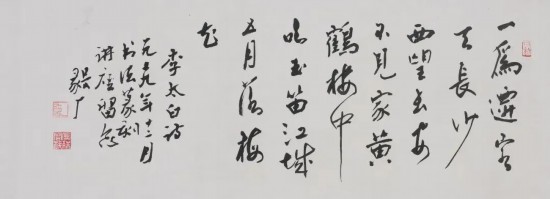 一爲遷客
去長沙
西望長安
不見家黃
鶴樓中
吹玉笛江城
五月落梅
花
李太白诗
九年十二月
书法篆刻
讲座留念